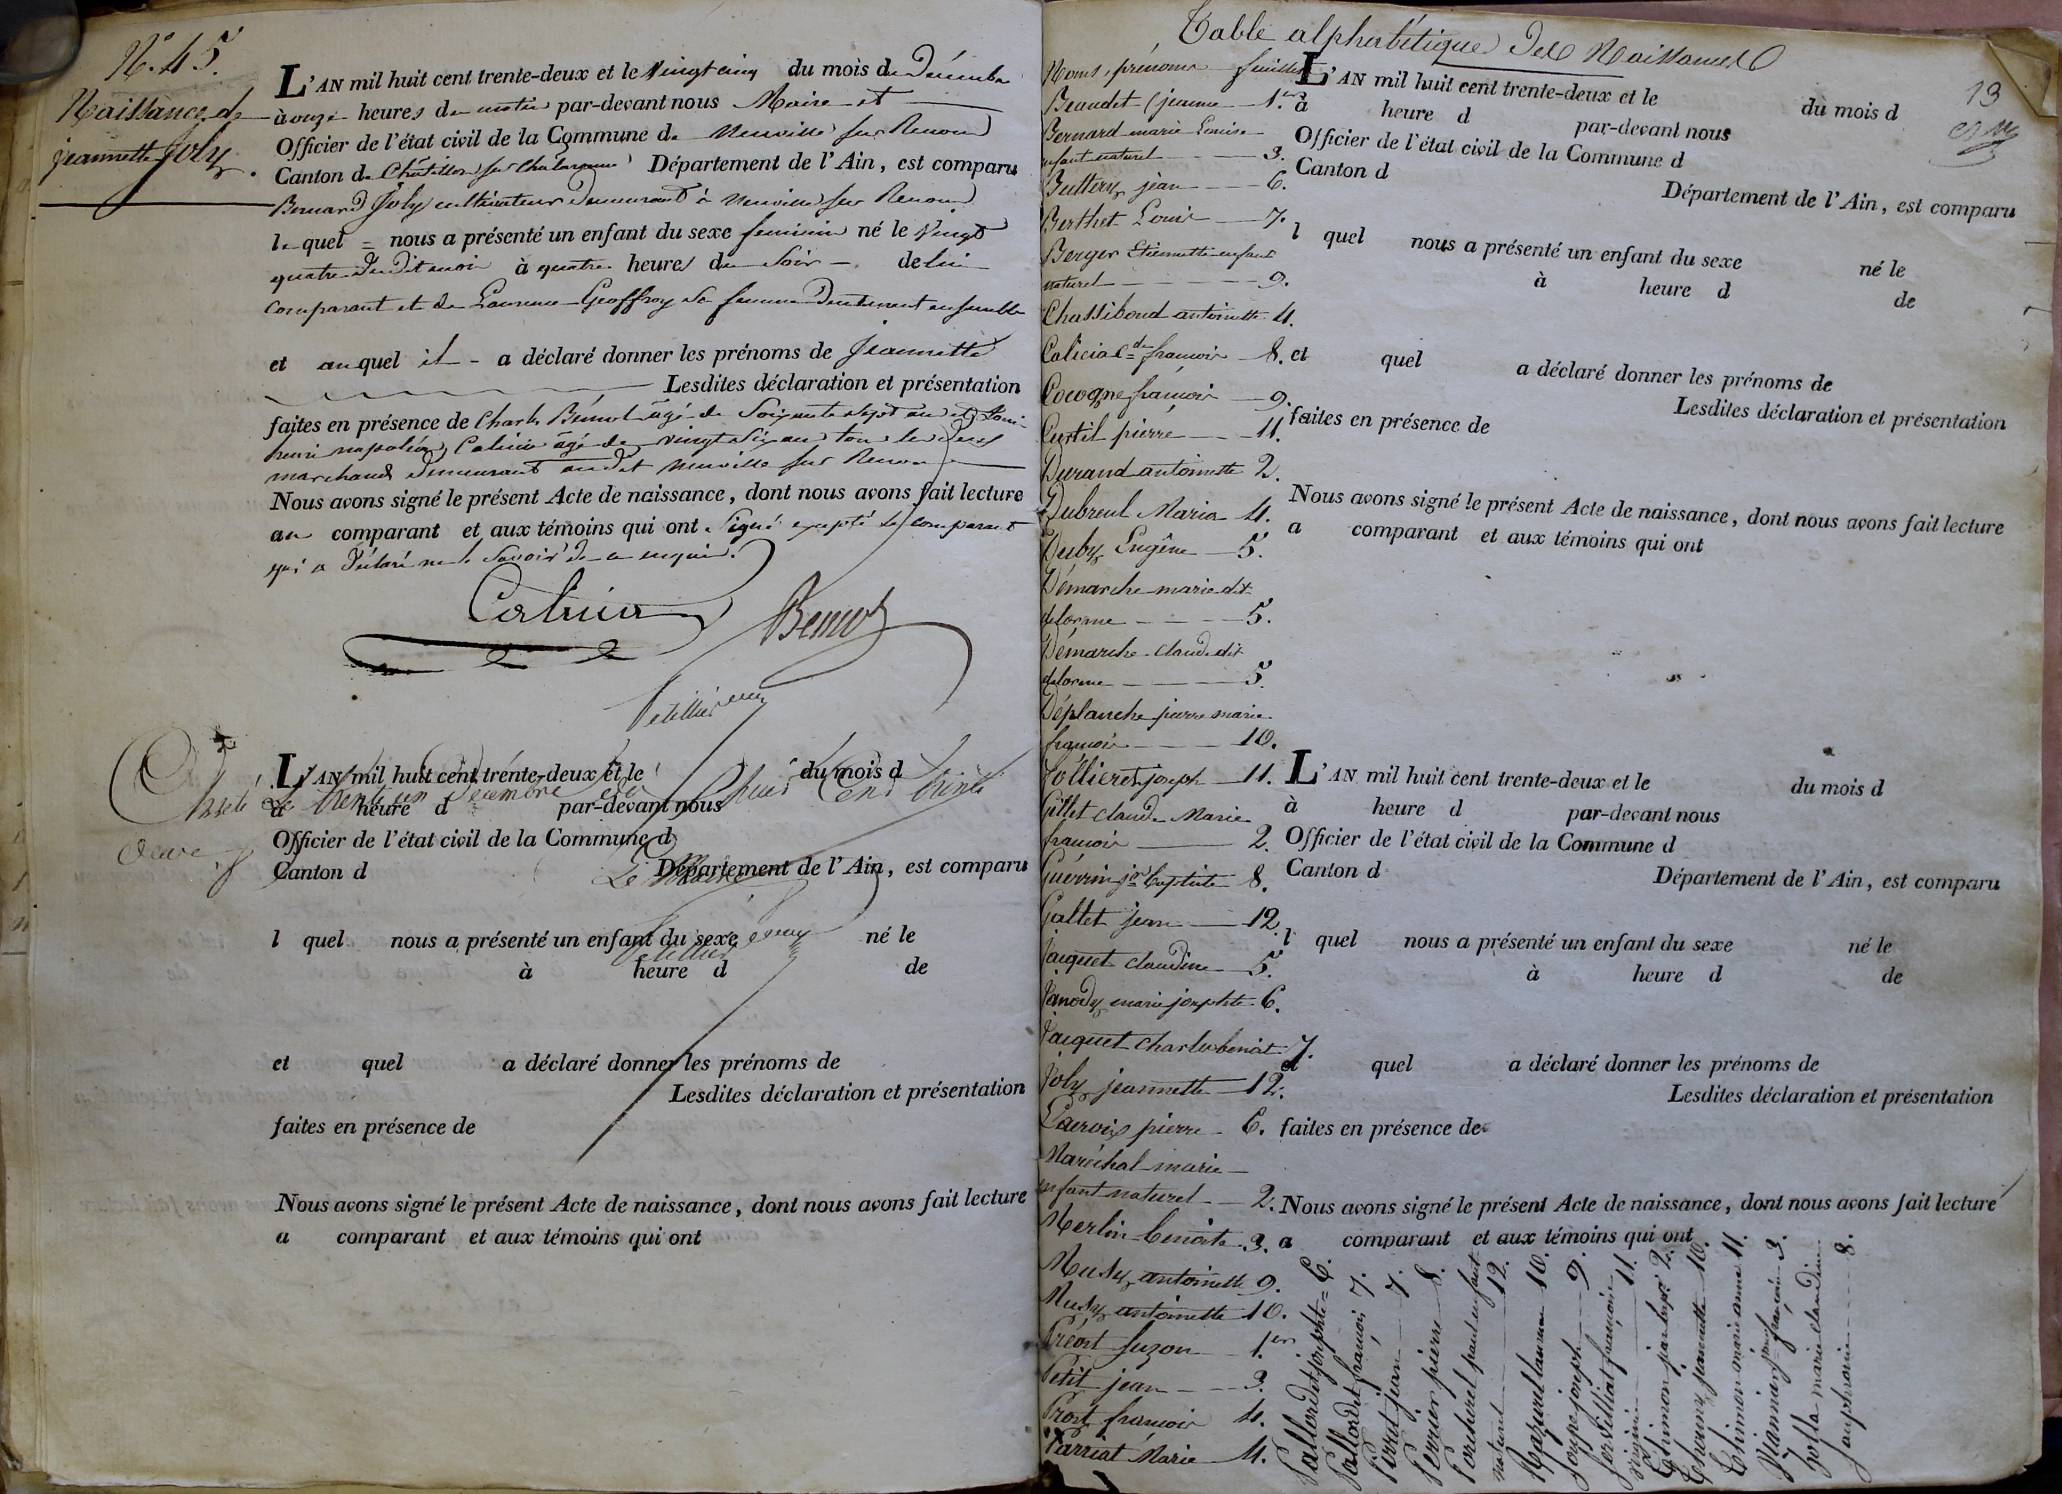 N°. 45.
Naissance de
jeannette Joly.
L'AN mil huit cent trente-deux et le vingt cinq du mois de Décembre
à onze heures du matin par-devant nous Maire et
Officier de l'état civil de la Commune de Neuville sur Renom
Canton de Châtillon sur Chalaronne Département de l'Ain, est comparu
Bernard Joly cultivateur demeurant à Neuville sur Renom
lequel = nous a présenté un enfant du sexe feminin né le vingt
quatre dudit mois à quatre heures du soir - de lui
comparant et de Laurence Geoffroy sa femme demeurant ensemble
et auquel il - a déclaré donner les prénoms de Jeannette
Lesdites déclaration et présentation
faites en présence de Charles Benoit âgé de soixante sept ans et Louis
henri napoléon Calicia âgé de vingt six ans tous les deux
marchands demeurant audit Neuville sur Renom
Nous avons signé le présent Acte de naissance, dont nous avons fait lecture
au comparant et aux témoins qui ont signé excepté le comparant
qui a déclaré ne le savoir de ce enquis.
Calicia
Benoit
L'AN mil huit cent trente-deux et le du mois d
Arrêté le trente un Décembre mil huit cent trente
à heure d par-devant nous
Officier de l'état civil de la Commune d
Canton d Département de l'Ain, est comparu
Le Maire
l quel nous a présenté un enfant du sexe né le
à heure d de
et quel a déclaré donner les prénoms de
Lesdites déclaration et présentation
faites en présence de
Nous avons signé le présent Acte de naissance, dont nous avons fait lecture
a comparant et aux témoins qui ont
Table alphabétique des Naissances
13
Noms, prénoms feuillets
Beaudet jeanne 1.er
Bernard marie Louise
enfant naturel 3.
Buttery jean 6.
Berthet Louis 7.
Berger Etiennette enfant
naturel 9.
Chassiboud antoinette 4.
Calicia françois 8.
Cocogne françois 9.
Curtil pierre 11.
Durand antoinette 2.
Dubreul Maria 4.
Duby Eugène 5.
Démarche marie dit
delorme 5.
Démarche claude dit
delorme 5.
Déplanche pierre marie
françois 10.
Follieret joseph 11.
Gillet claude Marie
françois 2.
Guérrin jean Baptiste 8.
Gallet jean 12.
Jacquet claudine 5.
Janody marie josephte 6.
Jacquet charles benoit 7.
Joly jeannette 12.
Lacroix pierre 6.
Maréchal marie
enfant naturel 2.
Merlin benoite 3.
Musy antoinette 9.
Musy antoinette 10.
Préost suzon 1.er
Petit jean 3.
Prost françois 4.
Parriat Marie 4.
L'AN mil huit cent trente-deux et le du mois d
à heure d par-devant nous
Officier de l'état civil de la Commune d
Canton d
Département de l'Ain, est comparu
l quel nous a présenté un enfant du sexe né le
à heure d de
et quel a déclaré donner les prénoms de
Lesdites déclaration et présentation
faites en présence de
Nous avons signé le présent Acte de naissance, dont nous avons fait lecture
a comparant et aux témoins qui ont
L'AN mil huit cent trente-deux et le du mois d
à heure d par-devant nous
Officier de l'état civil de la Commune d
Canton d
Département de l'Ain, est comparu
l quel nous a présenté un enfant du sexe né le
à heure d de
et quel a déclaré donner les prénoms de
Lesdites déclaration et présentation
faites en présence de
Nous avons signé le présent Acte de naissance, dont nous avons fait lecture
a comparant et aux témoins qui ont
Pallordet josephte 6.
Pallordet françois 7.
Perret jean 7.
Perrier pierre 8.
Porcherel paul enfant
naturel 12.
Mazuir laurence 10.
Soupe joseph 9.
Servilliat françoise
virginie 11.
Thimon jean bapt.e 2.
Thevenin jeannette 10.
Thimon marie anne 11.
Vianney françois 3.
Jolla marie claudine
8.